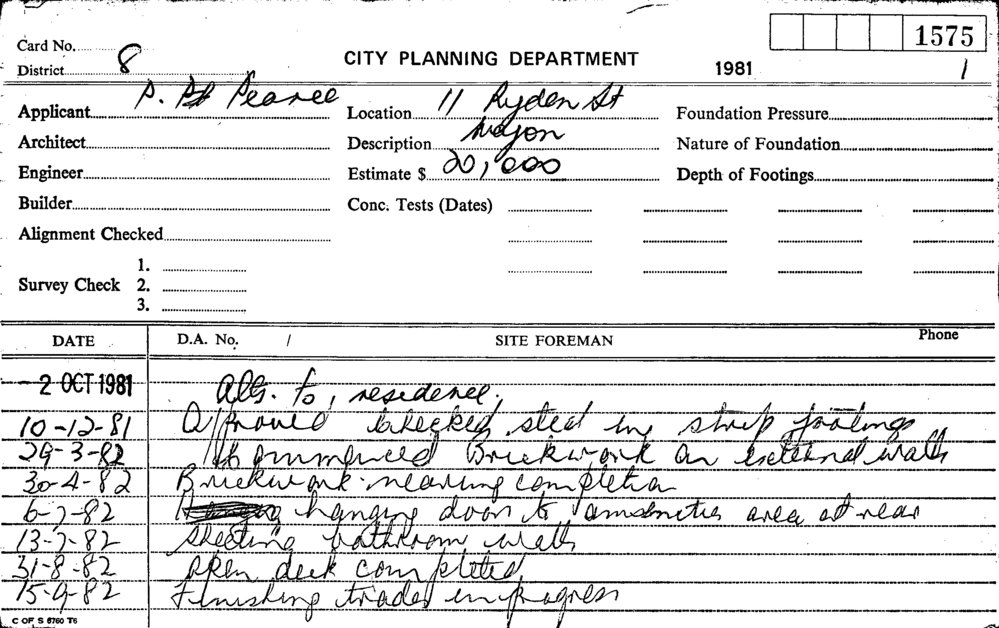 1575
Card No.
District 8
CITY PLANNING DEPARTMENT
1981 1
Applicant P. Pearce
Location 11 Ryden St
Foundation Pressure
Architect
Description
Nature of Foundation
Engineer
Estimate $ 20,000
Depth of Footings
Builder
Conc. Tests (Dates)
Alignment Checked
Survey Check 1.
2.
3.
DATE D.A. No. / SITE FOREMAN Phone
- 2 OCT 1981 Alts. to residence.
10-12-81 Approved checked steel in strip footings
29-3-82 Commenced Brickwork on external walls
30-4-82 Brickwork nearing completion
6-7-82 hanging door to amenities area at rear
13-7-82 Sheeting bathroom walls
31-8-82 open deck completed
15-9-82 Finishing trades in progress
C OF S 8760 T6